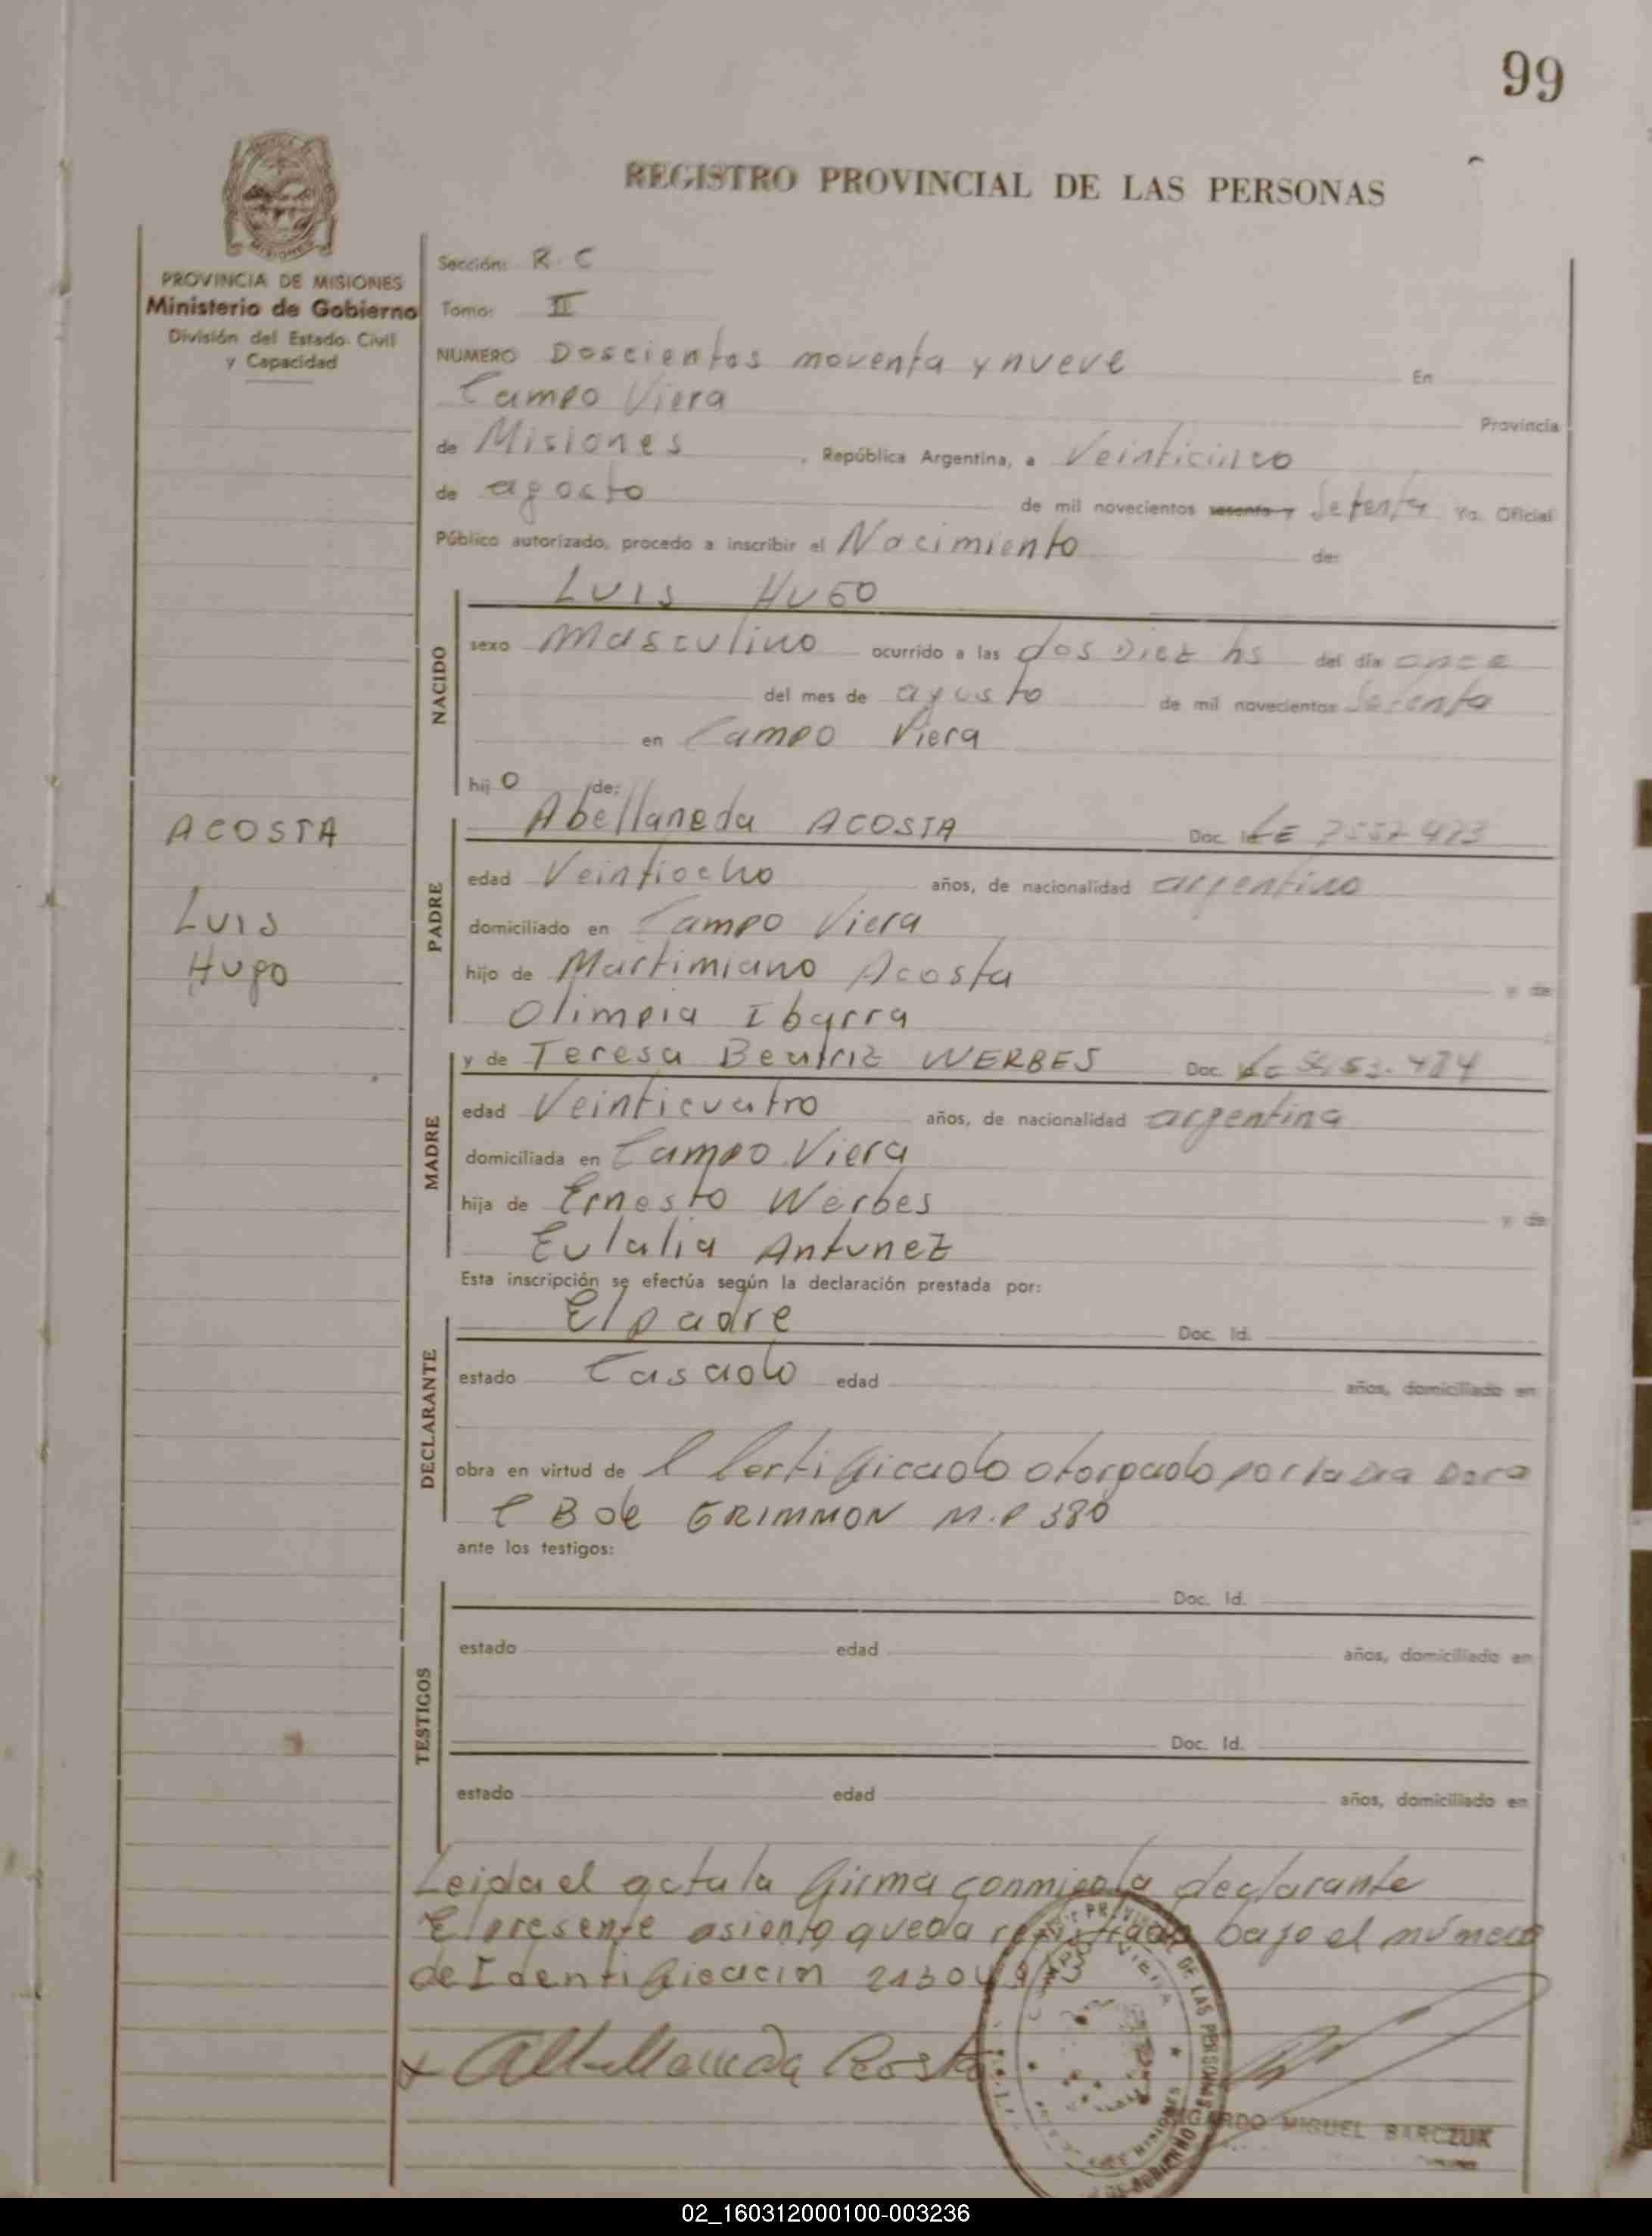 99
REGISTRO PROVINCIAL DE LAS PERSONAS
PROVINCIA DE MISIONES
Ministerio de Gobierno
División del Estado Civil
y Capacidad
Sección: R. C
Tomo: II
NUMERO Doscientos noventa y nueve En
Campo Viera Provincia
de Misiones, República Argentina, a Veinticinco
de agosto de mil novecientos sesenta y Setenta Yo. Oficial
Público autorizado, procedo a inscribir el Nacimiento de:
LUIS HUGO
NACIDO
sexo Masculino ocurrido a las dos Diez hs del día once
del mes de agosto de mil novecientos Setenta
en Campo Viera
hijo de:
ACOSTA
Luis
Hugo
PADRE
Abellaneda ACOSTA Doc. Id. LE
edad Veintiocho años, de nacionalidad argentino
domiciliado en Campo Viera
hijo de Martimiano Acosta y de
Olimpia Ibarra
MADRE
y de Teresa Beatriz WERBES Doc.
edad Veinticuatro años, de nacionalidad argentina
domiciliada en Campo Viera
hija de Ernesto Werbes y de
Eulalia Antunez
Esta inscripción se efectúa según la declaración prestada por:
DECLARANTE
El padre Doc. Id.
estado Casado edad años, domiciliado en
obra en virtud de l Certificado otorgado por la Dra Dora
C B de GRIMMON M.P 380
ante los testigos:
TESTIGOS
Doc. Id.
estado edad años, domiciliado en
Doc. Id.
estado edad años, domiciliado en
Leida el acta la firma conmigo la declarante
El presente asiento queda registrado bajo el número
de Identificacin
x Abellaneda Acosta
MIGUEL BARCZUK
02_160312000100-003236